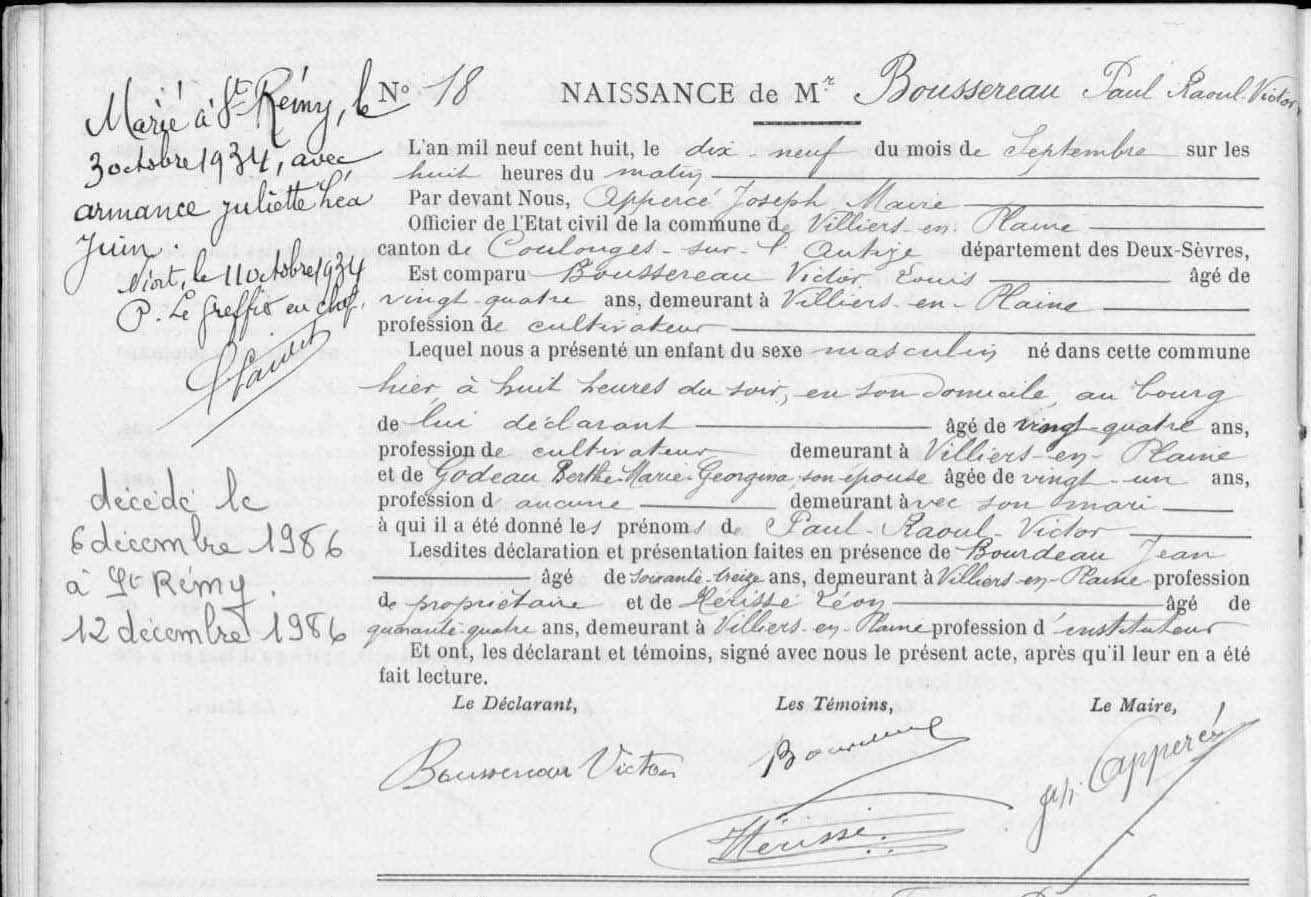 Marié à St Rémy, le
3 octobre 1934, avec
armance juliette Léa
Juin.
Niort, le 11 octobre 1934
P. Le Greffier en chef.
décédé le
6 décembre 1986
à St Rémy.
12 décembre 1986
N° 18 NAISSANCE de Mr Boussereau Paul Raoul-Victor
L'an mil neuf cent huit, le dix-neuf du mois de Septembre sur les
huit heures du matin
Par devant Nous, Apperçé Joseph Maire
Officier de l'Etat civil de la commune de Villiers-en-Plaine
canton de Coulonges-sur-l'Autize département des Deux-Sèvres,
Est comparu Boussereau Victor Louis âgé de
vingt-quatre ans, demeurant à Villiers-en-Plaine
profession de cultivateur
Lequel nous a présenté un enfant du sexe masculin né dans cette commune
hier, à huit heures du soir, en son domicile, au bourg
de lui déclarant âgé de vingt-quatre ans,
profession de cultivateur demeurant à Villiers-en-Plaine
et de Godeau Berthe-Marie-Georgina, son épouse âgée de vingt-un ans,
profession d aucune demeurant à avec son mari
à qui il a été donné les prénoms de Paul-Raoul-Victor
Lesdites déclaration et présentation faites en présence de Bourdeau Jean
âgé de soixante-treize ans, demeurant à Villiers-en-Plaine profession
de propriétaire et de Hérissé Léon âgé de
quarante-quatre ans, demeurant à Villiers-en-Plaine profession d'instituteur
Et ont, les déclarant et témoins, signé avec nous le présent acte, après qu'il leur en a été
fait lecture.
Le Déclarant, Les Témoins, Le Maire,
Boussereau Victor Bourdeau Jh Apperçé
Hérissé